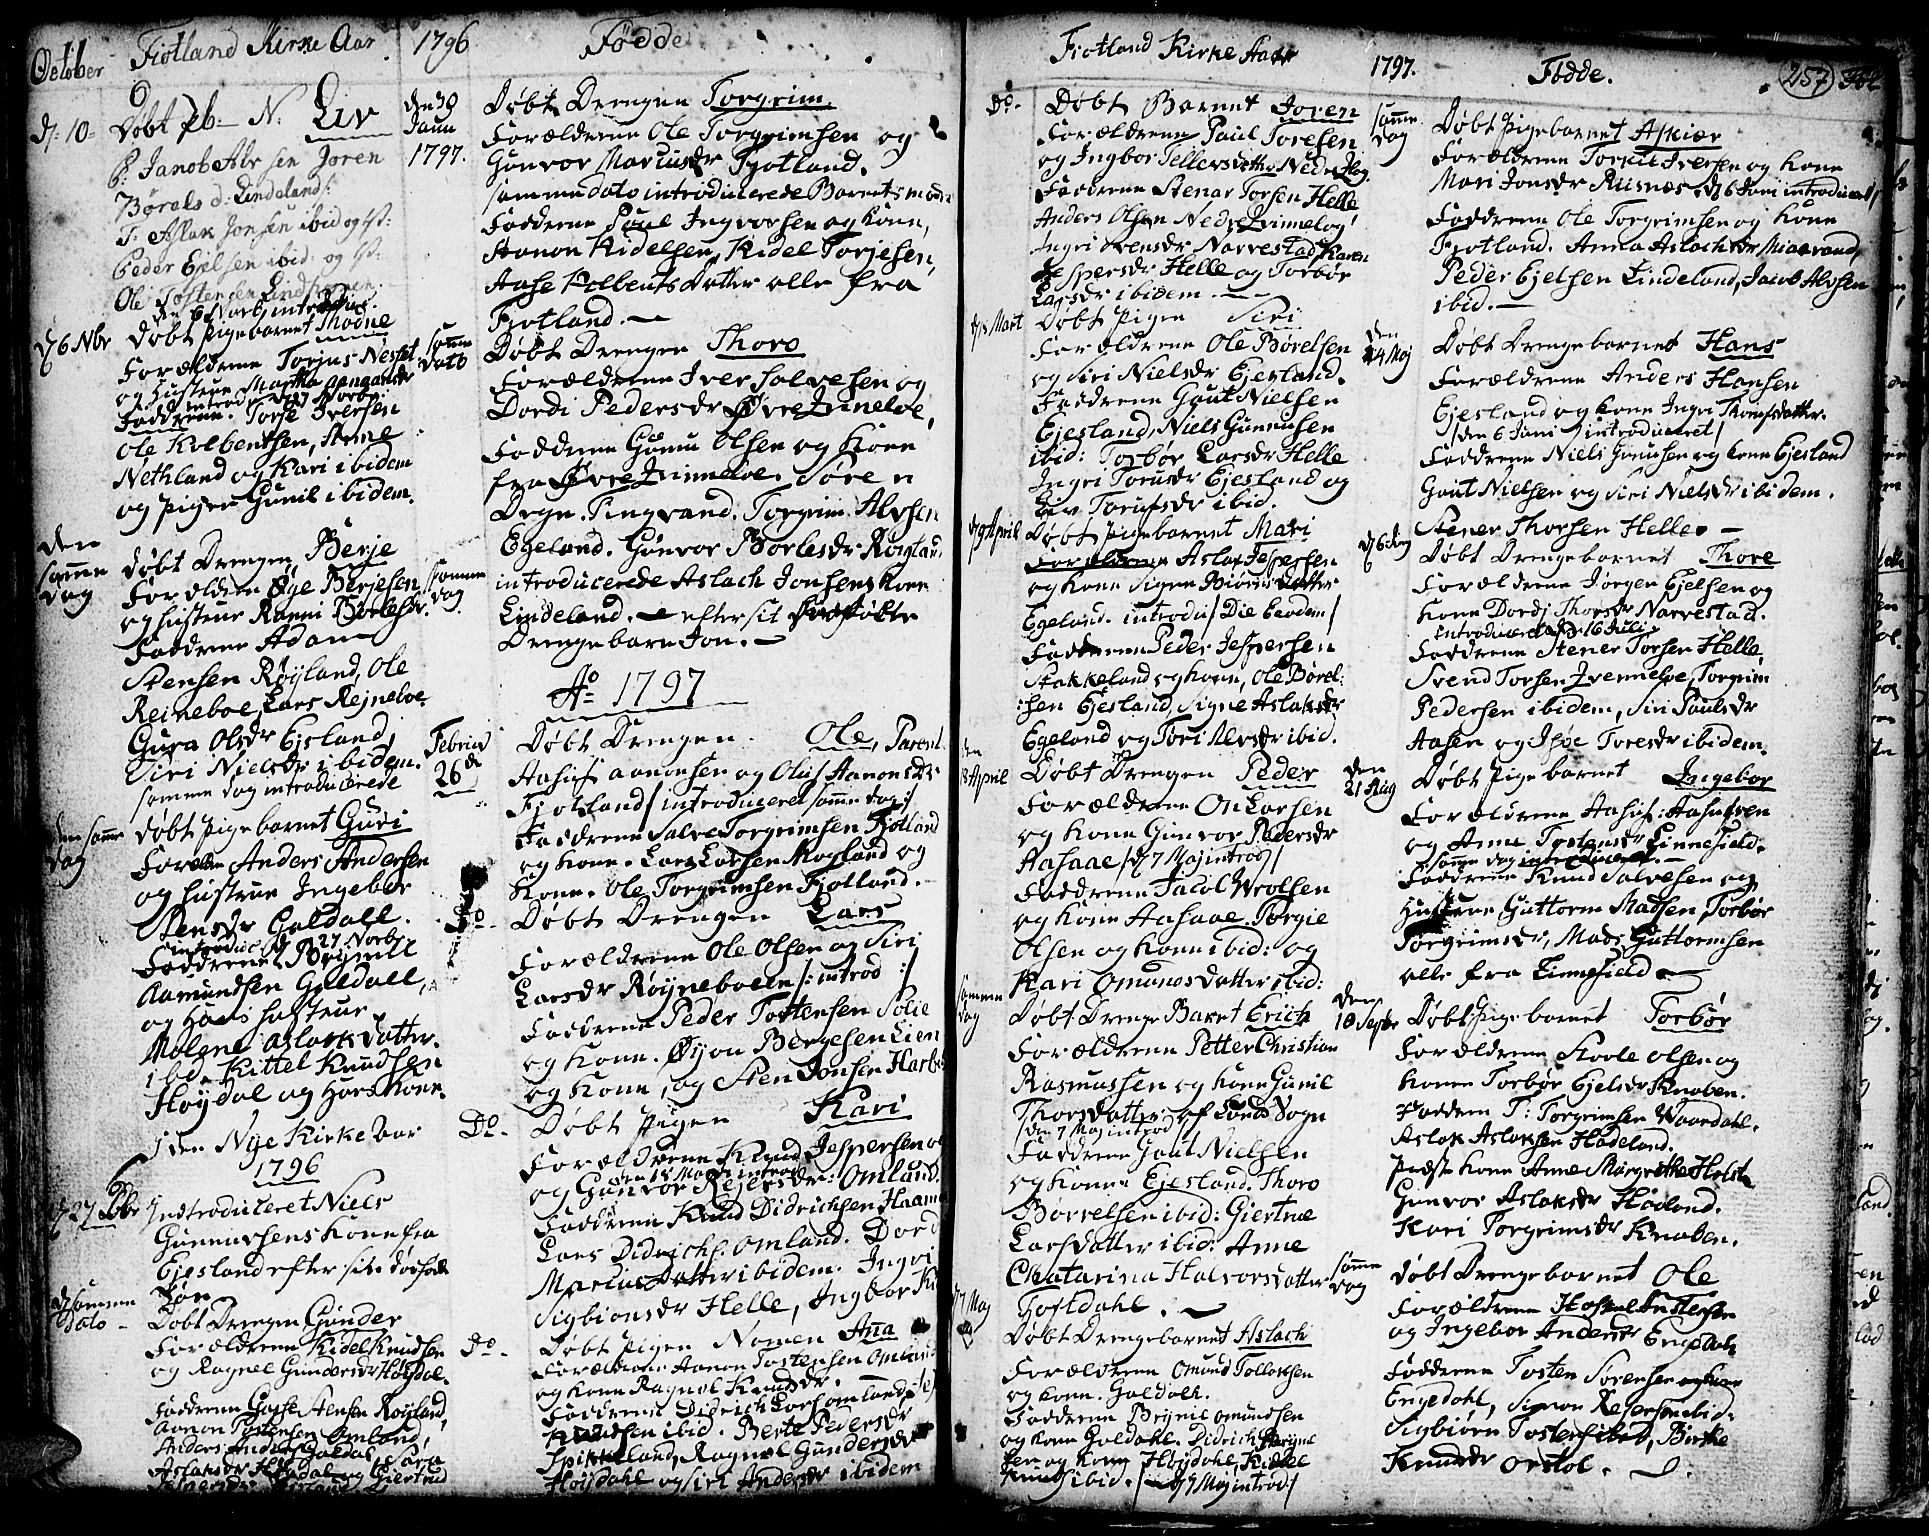 October Fiotland Kirke Aar 1796 Fødde
d: 10 = Døbt pb- N: Liv
F: Janob Alv sen Joren
Børels d: Lindeland:
T: Aslak Jonsen ibid og H:
Peder Ejelsen ibid: og H:
Ole Tostensen Lindhommen
den 6 Norb introduc.
d 6 Nbr Døbt Pigebarnet Thodne
Forældrene Torjus Nesset
og Hustrue Martha
introd d 27 Norb
Faddrene. Torse Iversen
Ole Kolbentsen, Anne
Nethland og Kari ibidem
og Pigen Gunil ibidem.
den samme dag Døbt Drengen Berje
Foreldren Øge Berjesen
og hustrue Ranni Børelsdr.
Faddrene Adam
Stensen Røyland, Ole
Reineboe, Lars Rejneboe
Gura Olsdr Ejsland,
Siri Nielsdr ibidem.
samme dag introducerede
den samme dag Døbt Pigebarnet Guri
Foreldre Anders Andersen
og Hustrue Ingebor
Stensdr Goldall.
introduc d 27 Norb
Faddrene Brynil
Aamundsen Goldall,
og Hans Hustrue
Malene Aslaksdatter.
ibd. Kittel Knudsen
Høydal og Hans Kone.
I den Nye Kirke Aar
1796
d 27 Dbr Introduceret Niels
Gunnufsens Kone fra
Ejesland efter sin dødfød
Søn
d samme Dato - Døbt Drengen Gunder
Forældrene Kidel Knudsen
og Ragnel Gundersdr Høydal.
Faddrene Gosse Stensen Røyland,
Aanon Tostensen Omland,
Anders Andersen Goldal, Sara
Aslaksdr Høydal og Giertrud
den 30 Janu 1797. Døbt Drengen Torgrim.
Forældrene Ole Torgrimsen og
Gunvor Marcusdr Fjotland.
samme dato introducerede Barnets moder
Faddrene Poul Ingvorsen og Kone,
Aanon Kidelsen, Kidel Torjesen,
Aase Kolbents Datter alle fra
Fiotland. —
samme dato Døbt Drengen Thoro
Forældrene Iver Salvesen og
Dordi Pedersdr Øvre Zinneloe,
Faddrene Gunnu Olsen og Kone
fra Øvre Zinneloe. Søren
Drgn. Tingvand. Torgrim. Alvsen
Egeland. Gunvor Børelsdr Røyland
samme dag introducerede Aslach Jonsens Kone
Lindeland. — efter sit
Drengebarn Jon. —
Ao 1797
Februar 26de Døbt Drengen. Ole, Parent
Aasuf Aanonsen og Oluf Aanonsdr
Fjotland / introduceret samme dag /
Faddrene Salve Torgrimsen Fjotland
og Kone. Lars Larsen Kogland og
Kone. Ole Torgrimsen Fjotland.
Do - Døbt Drengen Lars
Forældrene Ole Olsen og Siri
Larsdr Røyneboeen /: introd :/
Faddrene Peder Tostensen Solie
og Kone. Øyon Bergesen Lien
og Kone, og Sten Jonsen
Do - Døbt Pigen Kari
Forældrene Knud Jespersen og
den 18 Marti introd
og Gunvor Rejersdr: Omland.
Faddrene Knud Didrichsen
Lars Didrichs. Omland. Dord
Marcus Datter ibidem. Ingri
Sigbionsdr Helle, Ingbor
Do - Døbt Pigen Nomen Aña
Forældrene Aanon Tostensen Omland
og Kone Ragnel Knudsdr.
Faddrene Didrich Larsen Omland,
Knudsen ibid. Berte Pedersdr
Spikkeland, Ragnel Gundersdr
Høydahl og Siri Andersdr ibidem
Fiotland Kirke Aar 1797. Fødde. 257
Do - Døbt Barnet Joren
Forældrene Paul Toresen
og Ingbor Tellevsdatter Nedre
Faddrene Stenar Torsen Helle
Anders Olsen Nedre Zvinneloe,
Ingri Svensdr Narvestad, Karen
Jespersdr Helle og Torbør
Larsdr ibidem —
d/5 Mart Døbt Pigen Siri
Forældrene Ole Børelsen
og Siri Nielsdr Ejesland.
Faddrene Gout Nielsen
Ejesland, Niels Gunnufsen
ibid: Torbør Larsdr Helle
Ingri Torusdr Ejesland og
Liv Torufsdr ibid.
d/9 April Døbt Pigebarnet Mari
Forældrene Aslak Jespersen
og Kone Signe Biørnsdatter
Egeland. introdu / Die Eodem /
Faddrene Peder Jespersen
Stakkeland og Kone, Ole Børel-
:sen Ejesland, Signe Aslaksdr
Egeland og Tori Alvsdr ibid.
den 18 April Døbt Drengen Peder
Forældrene On Larsen
og Kone Gunvor Pedersdr
Aasaae / d 7 Maj introd /
Faddrene Jacob Wrolsen
og Kone Aasaae. Torgie
Olsen og Kone ibid: og
Kari Omunds datter ibid:
samme dag Døbt Drenge Barnet Erich
Forældrene Petter Christian
Rasmussen og Kone Gunil
Thorsdatter af Lunds Sogn
/ den 7 Maj introd /
Faddrene Gout Nielsen
og Konne Ejesland. Thoro
Børrelsen ibid: Giertrue
Larsdatter ibid: Anne
Chatarina Halvorsdatter
Fostdahl. —
d 7 Maj Døbt Drengebarnet Aslach
Forældrene Omund Tollofsen
og Kone. Goldalh.
Faddrene Brynil Omundsen
og Kone Goldahl. Didrich
sen og Kone Høydahl, Kittel
Knudsen ibid. / d 7 Maj introd /
samme dag Døbt Pigebarnet Askiær
Forældrene Torkil Iversen og Kone
Mari Jonsdr Risnæs. d 6 Juni introduceret /
Faddrene Ole Torgrimsen og Kone
Fjotland. Anna Aslachsdr Miaavand,
Peder Ejelsen Lindeland, Jacob Alvsen
ibid. —
den 24 Maj Døbt Drengebarnet Hans
Forældrene Anders Hansen
Ejesland og Kone Ingri Thorufsdatter.
/ den 6 Juni introduceret /
Faddrene Niels Gunufsen og Kone Ejesland
Gout Nielsen og Siri Nielsdr ibidem.
Stener Thorsen Helle. —
Døbt Drengebarnet Thore
Forældrene Jørgen Ejelsen og
Kone Dordj Thorsdr Narvestad.
introduceret d 16 Juli
Faddrene Stener Torsen Helle,
Svend Torsen Zvenneloe, Torgrim
Pedersen ibidem, Siri Poulsdr
Aasen og Toresdr ibidem.
den 21 Aug Døbt Pigebarnet Ingebor
Forældrene Aasuf: Aasufsen
og Anne Tostensdr Linnefield.
samme dag introduceret. —
Faddrene Knud Salvesen og
Hustrue Guttorm Madsen, Torbør
Torgrimsdr, Mads Guttormsen
alle fra Linnefield —
den 10 Septbr Døbt Pigebarnet Torbør
Forældrene Stoele Olsen og
Konen Torbør Ejelsdr Knaben.
Faddren T: Torgrimsen Waardahl.
Aslak Aslaksen Hadeland.
Præste Kone Anne Margrethe Holst
Gunvor Aslaksdr Hadland.
Kari Torgrimsdr Knaben.
samme dag Døbt Drengebarnet Ole
Forældrene
og Ingebor Andersdr Engedahl
Faddrene Tosten Sørensen og Kone
Engedahl, Simon ibid:
Sigbiørn Tostensen ibid, Birke
Knudsdr Orstol. —